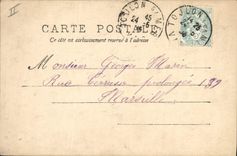 CARTE POSTALE
Ce côté est exclusivement réservé à l'adresse
Monsieur Georges Marin
Rue Terrusse prolongée 139
Marseille